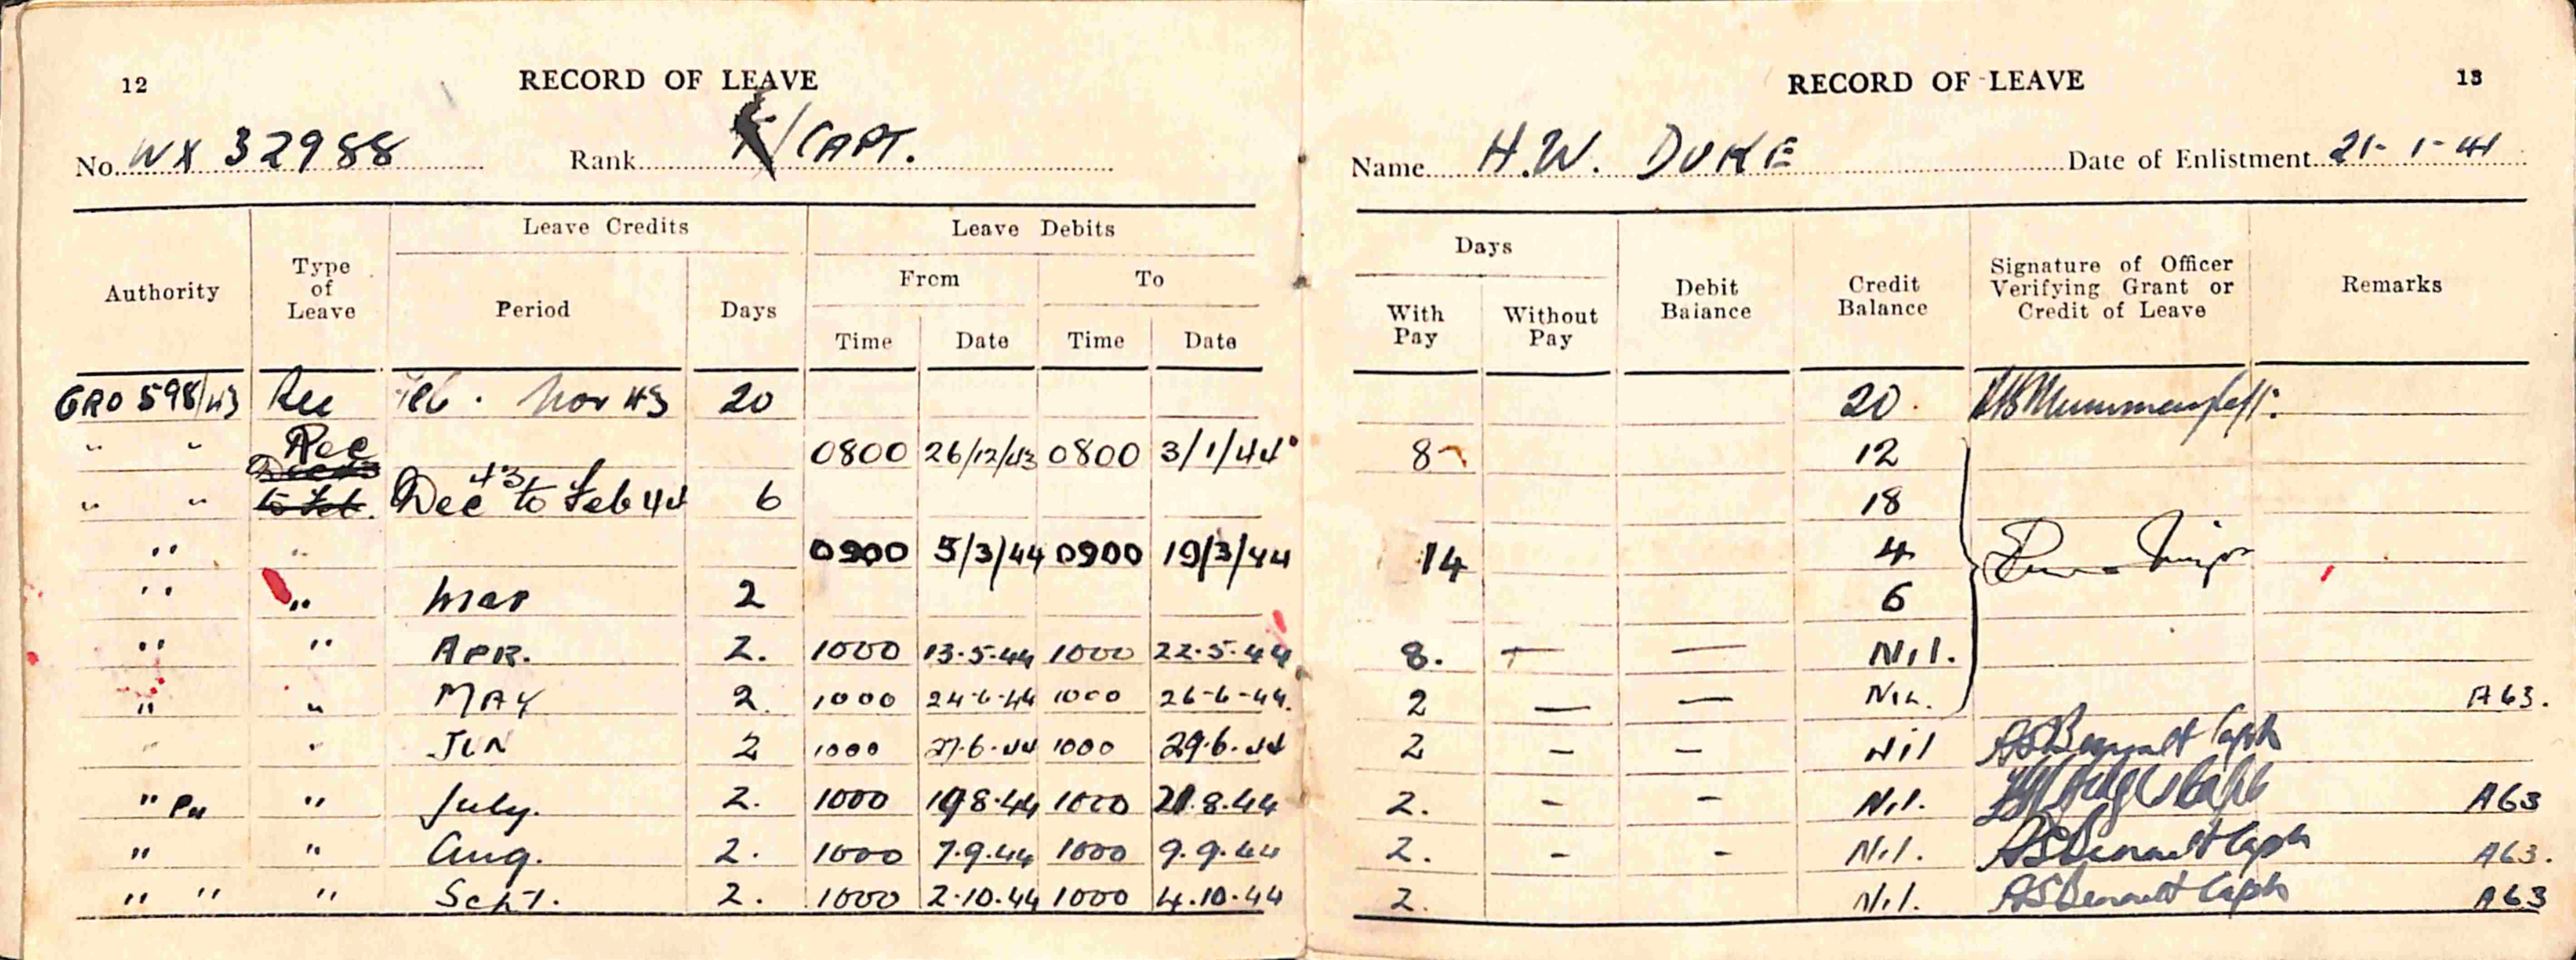 12
RECORD OF LEAVE
No. WX 32988 Rank /CAPT.
Authority
Type of Leave
Leave Credits
Period
Days
Leave Debits
From
To
Time
Date
Time
Date
GRO 598/43 Rec Feb. Nov 43 20
" " Rec 0800 26/12/43 0800 3/1/44
" " Dec 43 to Feb 44 6
" " 0900 5/3/44 0900 19/3/44
" " Mar 2
" " APR. 2. 1000 13.5.44 1000 22.5.44
" " MAY 2. 1000 24-6-44 1000 26-6-44.
" " JUN 2 1000 27.6.44 1000 29.6.44
" " July. 2. 1000 19.8.44 1000 21.8.44
" " Aug. 2. 1000 7.9.44 1000 9.9.44
" " " Sept. 2. 1000 2.10.44 1000 4.10.44
RECORD OF LEAVE
13
Name H.W. DUKE Date of Enlistment 21-1-41
Days
With Pay
Without Pay
Debit Balance
Credit Balance
Signature of Officer Verifying Grant or Credit of Leave
Remarks
20.
8 12
18
14 4
6
8. — — Nil.
2 — — NIL. A63.
2 – – Nil Capt
2. – – Nil. Capt A63
2. – – Nil. Capt A63.
2. Nil. Capt A63